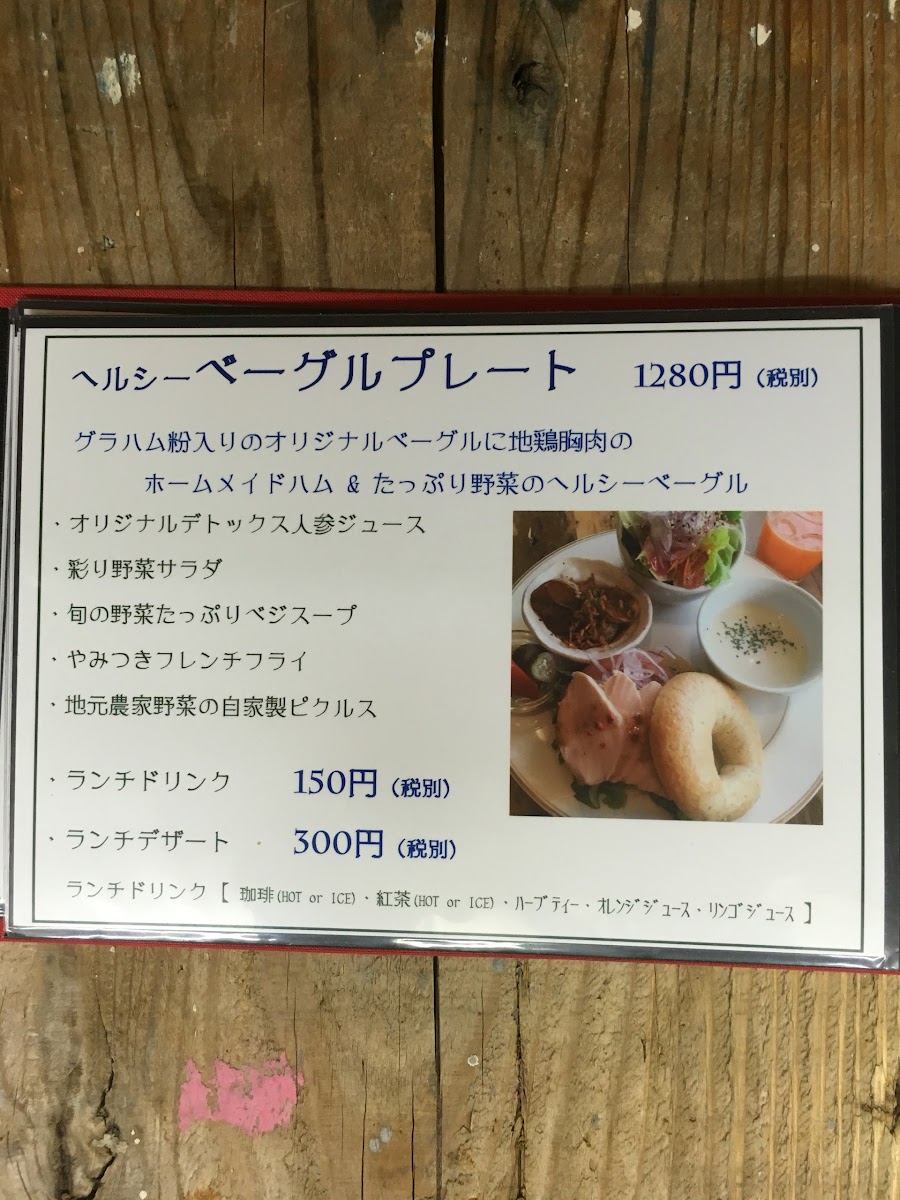 ヘルシーベーグルプレート 1280円(税別)
グラハム粉入りのオリジナルベーグルに地鶏胸肉の
ホームメイドハム & たっぷり野菜のヘルシーベーグル
・オリジナルデトックス人参ジュース
・彩り野菜サラダ
・旬の野菜たっぷりベジスープ
・やみつきフレンチフライ
・地元農家野菜の自家製ピクルス
・ランチドリンク 150円(税別)
・ランチデザート 300円(税別)
ランチドリンク【 珈琲(HOT or ICE)・紅茶(HOT or ICE)・ハーブティー・オレンジジュース・リンゴジュース 】